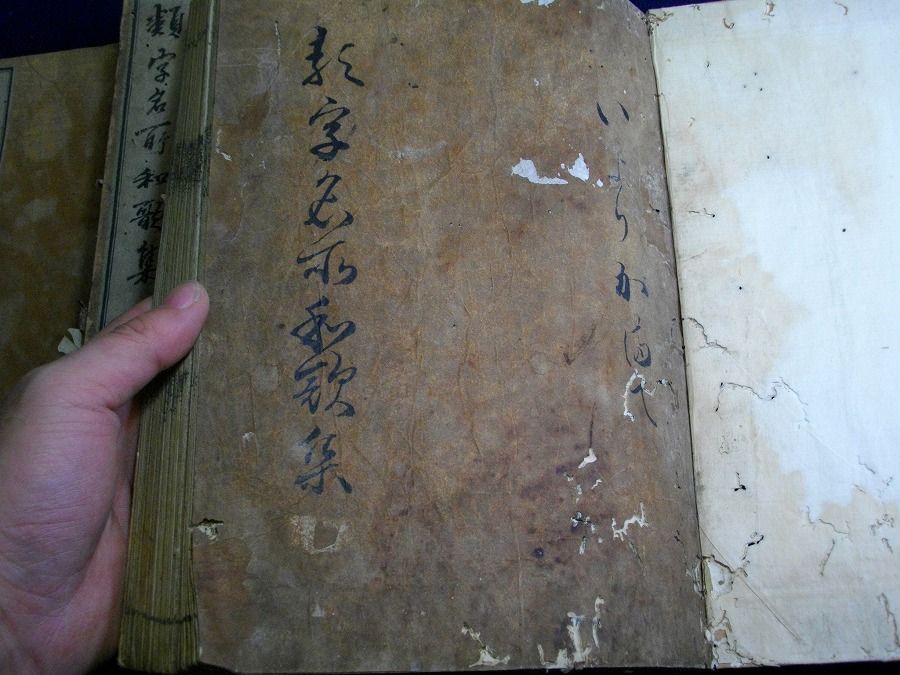 いより
類字名所和歌集
類字名所和歌集